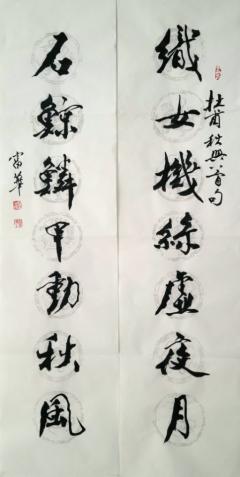 杜甫秋兴八首句
織女機絲虛夜月
石鯨鱗甲動秋風